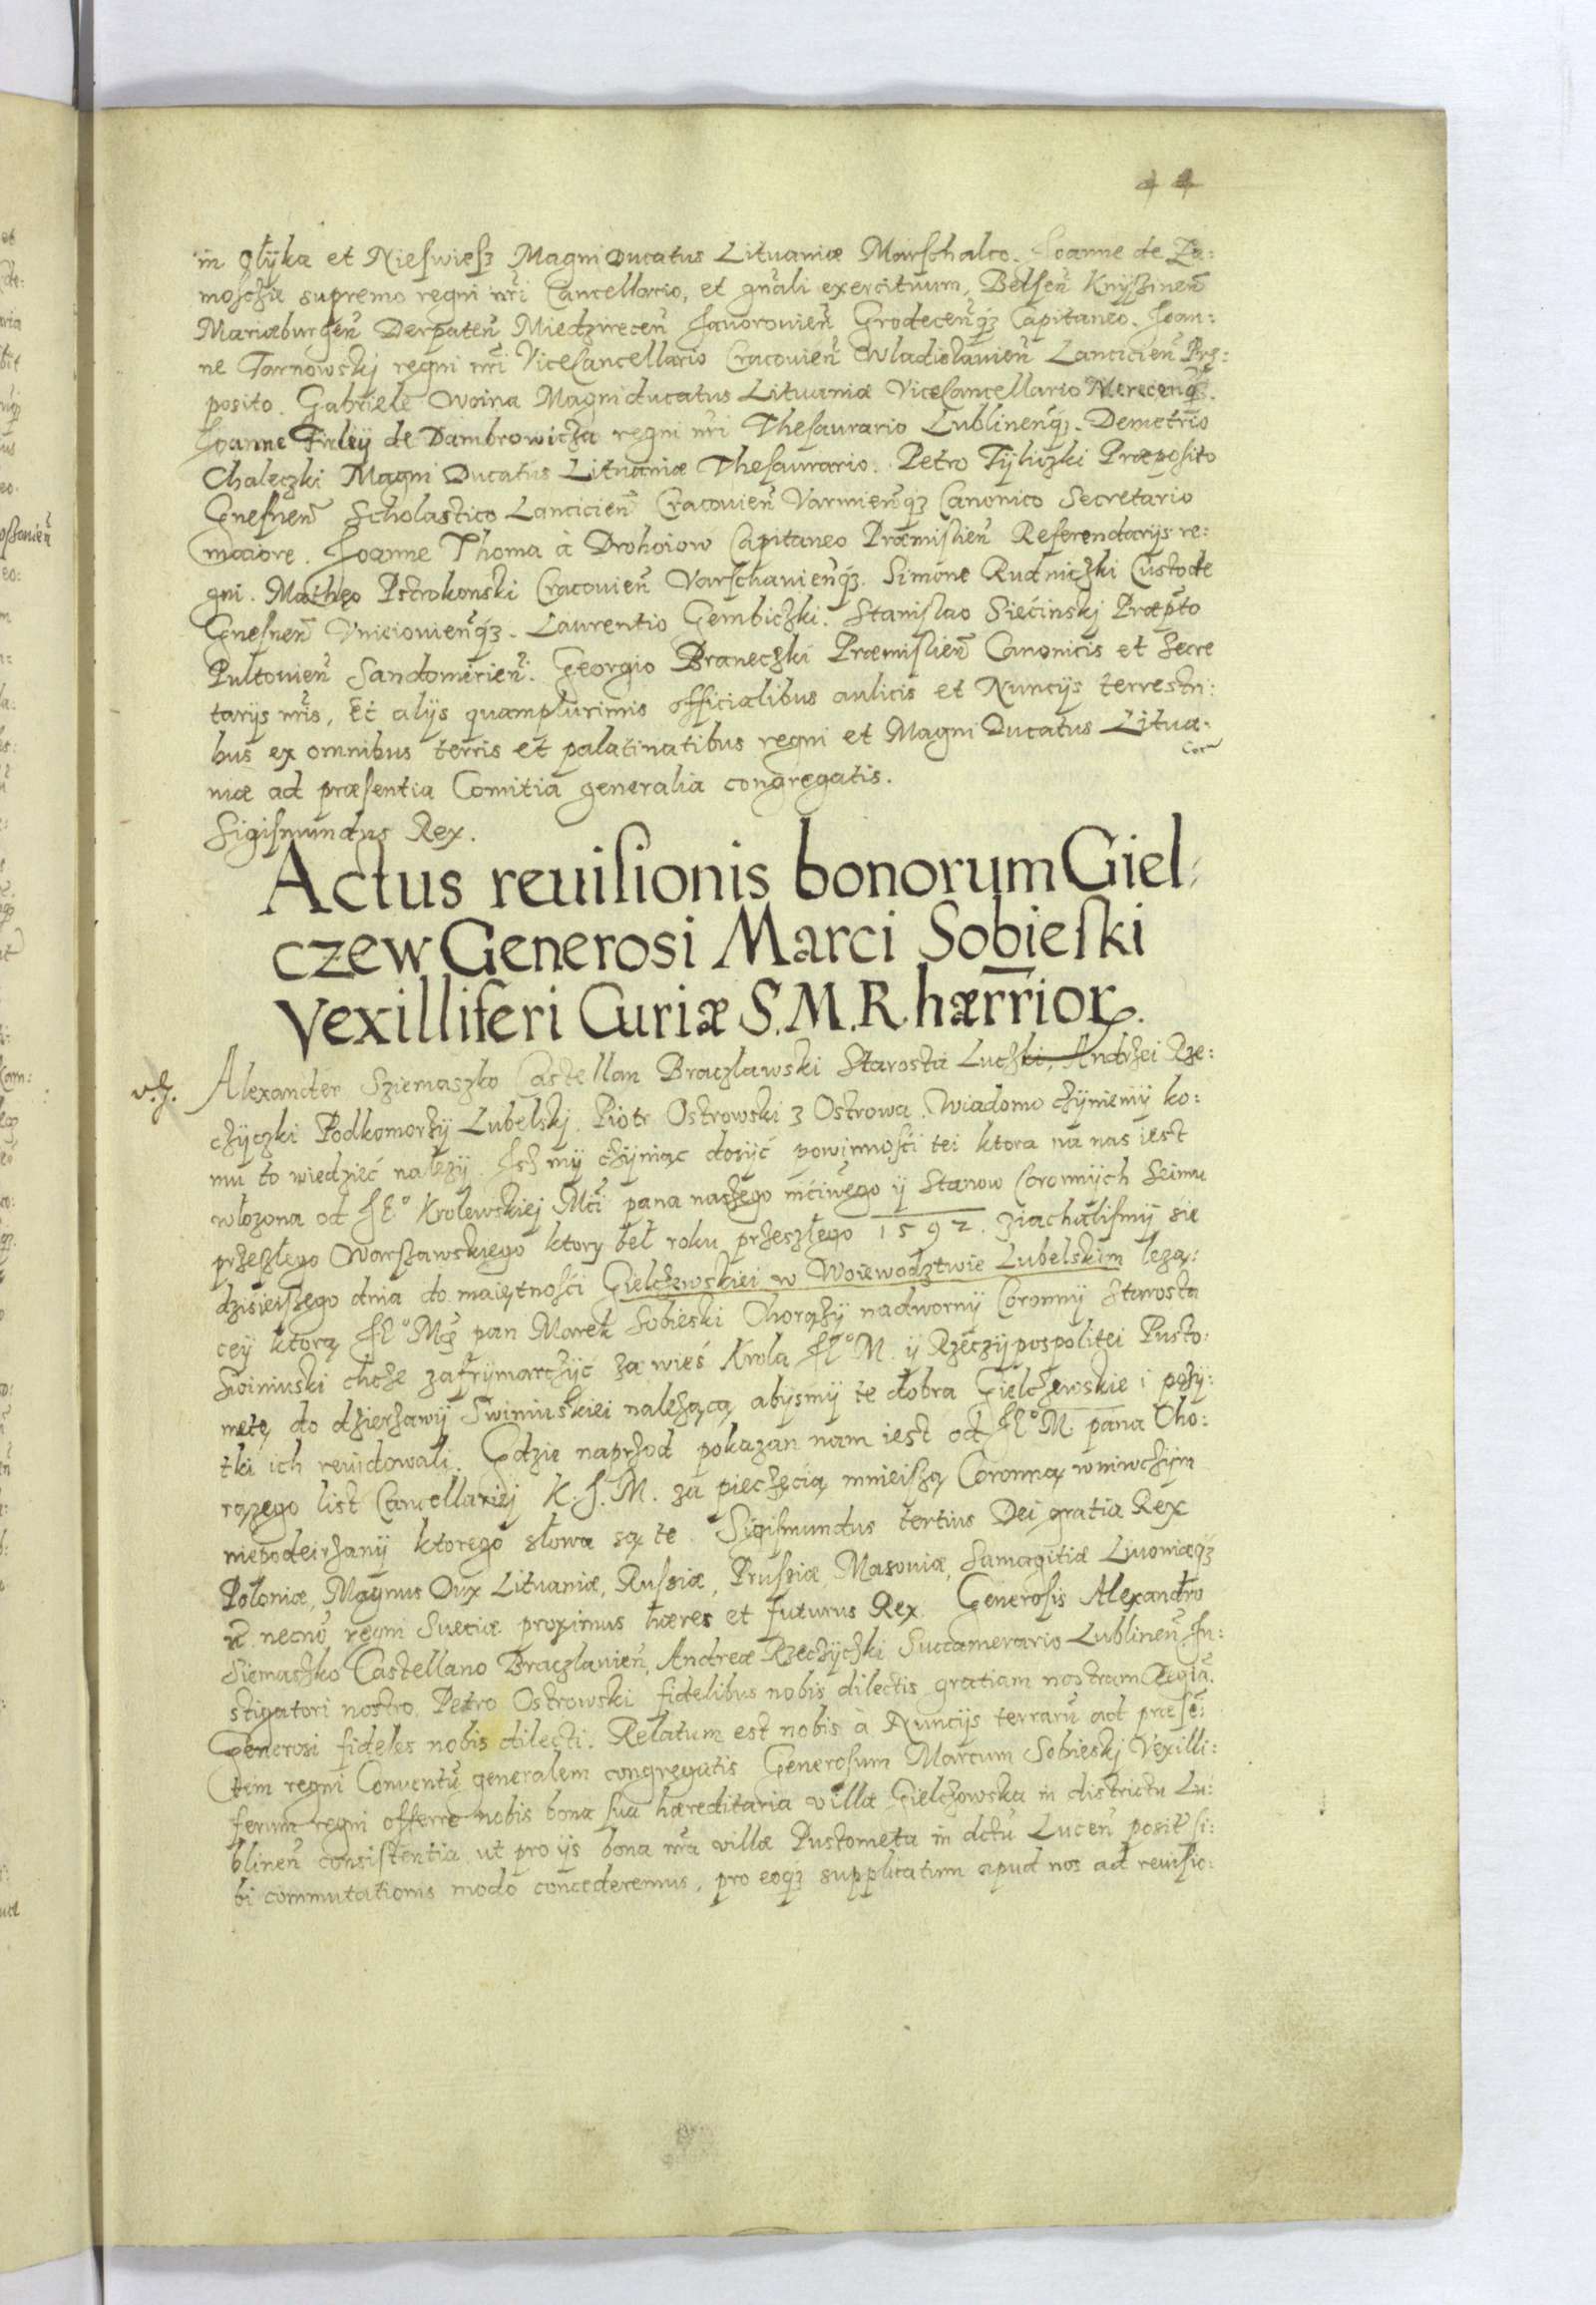 44
in Ołyka et Nieswiesz Magni Ducatus Lituaniæ Marschalco. Joanne de Za:
mosczia supremo regni nr̃i Cancellario, et gnãli exercituum, Belseñ Knyszineñ
Mariæburgeñ Derpateñ Miedzireceñ Javorovieñ Grodeceñq3 Capitaneo. Joan:
ne Tarnowskj regni nr̃i ViceCancellario Cracovieñ Wladislavieñ Lancicieñ Præ:
posito. Gabriele Woina Magni ducatus Lituaniæ Vicecancellario Mereceñq3.
Joanne Firleÿ de Dambrowicza regni nr̃i Thesaurario Lublineñq3. Demetrio
Chaleczki Magni Ducatus Lituaniæ Thesaurario. Petro Tÿliczki Præposito
Gnesneñ Scholastico Lancicieñ Cracovieñ Varmieñq3 Canonico Secretario
maiore. Joanne Thoma à Drohoiow Capitaneo Præmislieñ Referendarijs re:
gni. Matheo Pstrokonski Cracovieñ Varschavieñq3. Simone Rudniczki Custode
Gnesneñ Vnieiovieñq3. Laurentio Gembiczki. Stanislao Siećinskj Præpto
Pultovieñ Sandomirieñ. Georgio Braneczki Præmislieñ Canonicis et Secre
tarijs nr̃is, Et alijs quamplurimis officialibus aulicis et Nuncijs terrestri:
bus ex omnibus terris et palatinatibus regni et Magni Ducatus Litua:
niæ ad præsentia Comitia generalia congregatis.
Sigismundus Rex.
Actus revisionis bonorum Giel:
czew Generosi Marci Sobieski
Vexilliferi Curiæ S.M.R. hær̃rior.
Alexander Sziemaszko Castellan Braczlawski Starosta Luczki, Andrzei Rze:
czÿczki Podkomorzÿ Lubelskj. Piotr Ostrowski z Ostrowa. Wiadomo czÿniemÿ ko:
mu to wiedzieć nalezÿ. Isz mÿ czÿniąc dosÿć powinnośći tei ktora na nas iest
włozona od JE° Krolewskiej Mći pana naszego mćiwego ÿ Stanow Coronnÿch Seimu
przeszłego Warszawskiego ktory beł roku przeszłego 1592. ziachalismÿ sie
dzisieiszego dnia do maiętnośći Gielczewskiei w Woiewodztwie Lubelskim lezą:
ceÿ ktorą JE° Mć pan Marek Sobieski Chorązÿ nadwornÿ Coronnÿ Starosta
Swiniuski chcze zafrÿmarczÿć za wieś Krola JE° M. ÿ Rzeczÿpospolitei Pusto:
metę do dzierzawÿ Swiniuskiei nalezącą abysmÿ te dobra Gielczewskie i pozÿ:
tki ich revidowali. Gdzie naprzod pokazan nam iest od JE° M. pana Cho:
rązego list Cancellariej K. J. M. za pieczęcią mnieiszą Coronną wniwczÿm
niepodeirzanÿ ktorego słowa są te. Sigismundus tertius Dei gratia Rex
Poloniæ, Magnus Dux Lituaniæ, Russiæ, Prussiæ, Masoviæ, Samagitiæ Livoniæq3
necno regni Sueciæ proximus hæres et futurus Rex. Generosis Alexandro
Siemaszko Castellano Braczlavieñ, Andreæ Rzeczÿczki Succamerario Lublineñ In:
stigatori nostro. Petro Ostrowski fidelibus nobis dilectis gratiam nostram Regiã.
Generosi fideles nobis dilecti. Relatum est nobis à Nuncijs terrarũ ad præsẽ:
tem regni Conventũ generalem congregatis Generosum Marcum Sobieskj Vexilli:
ferum regni offerre nobis bona sua hæreditaria villæ Gielczowska in districtu Lu:
blineñ consistentia ut pro ijs bona nr̃a villæ Pustometa in dctu Luceñ posit si:
bi commutationis modo concederemus, pro eoq3 supplicatum apud nos ad revisio: